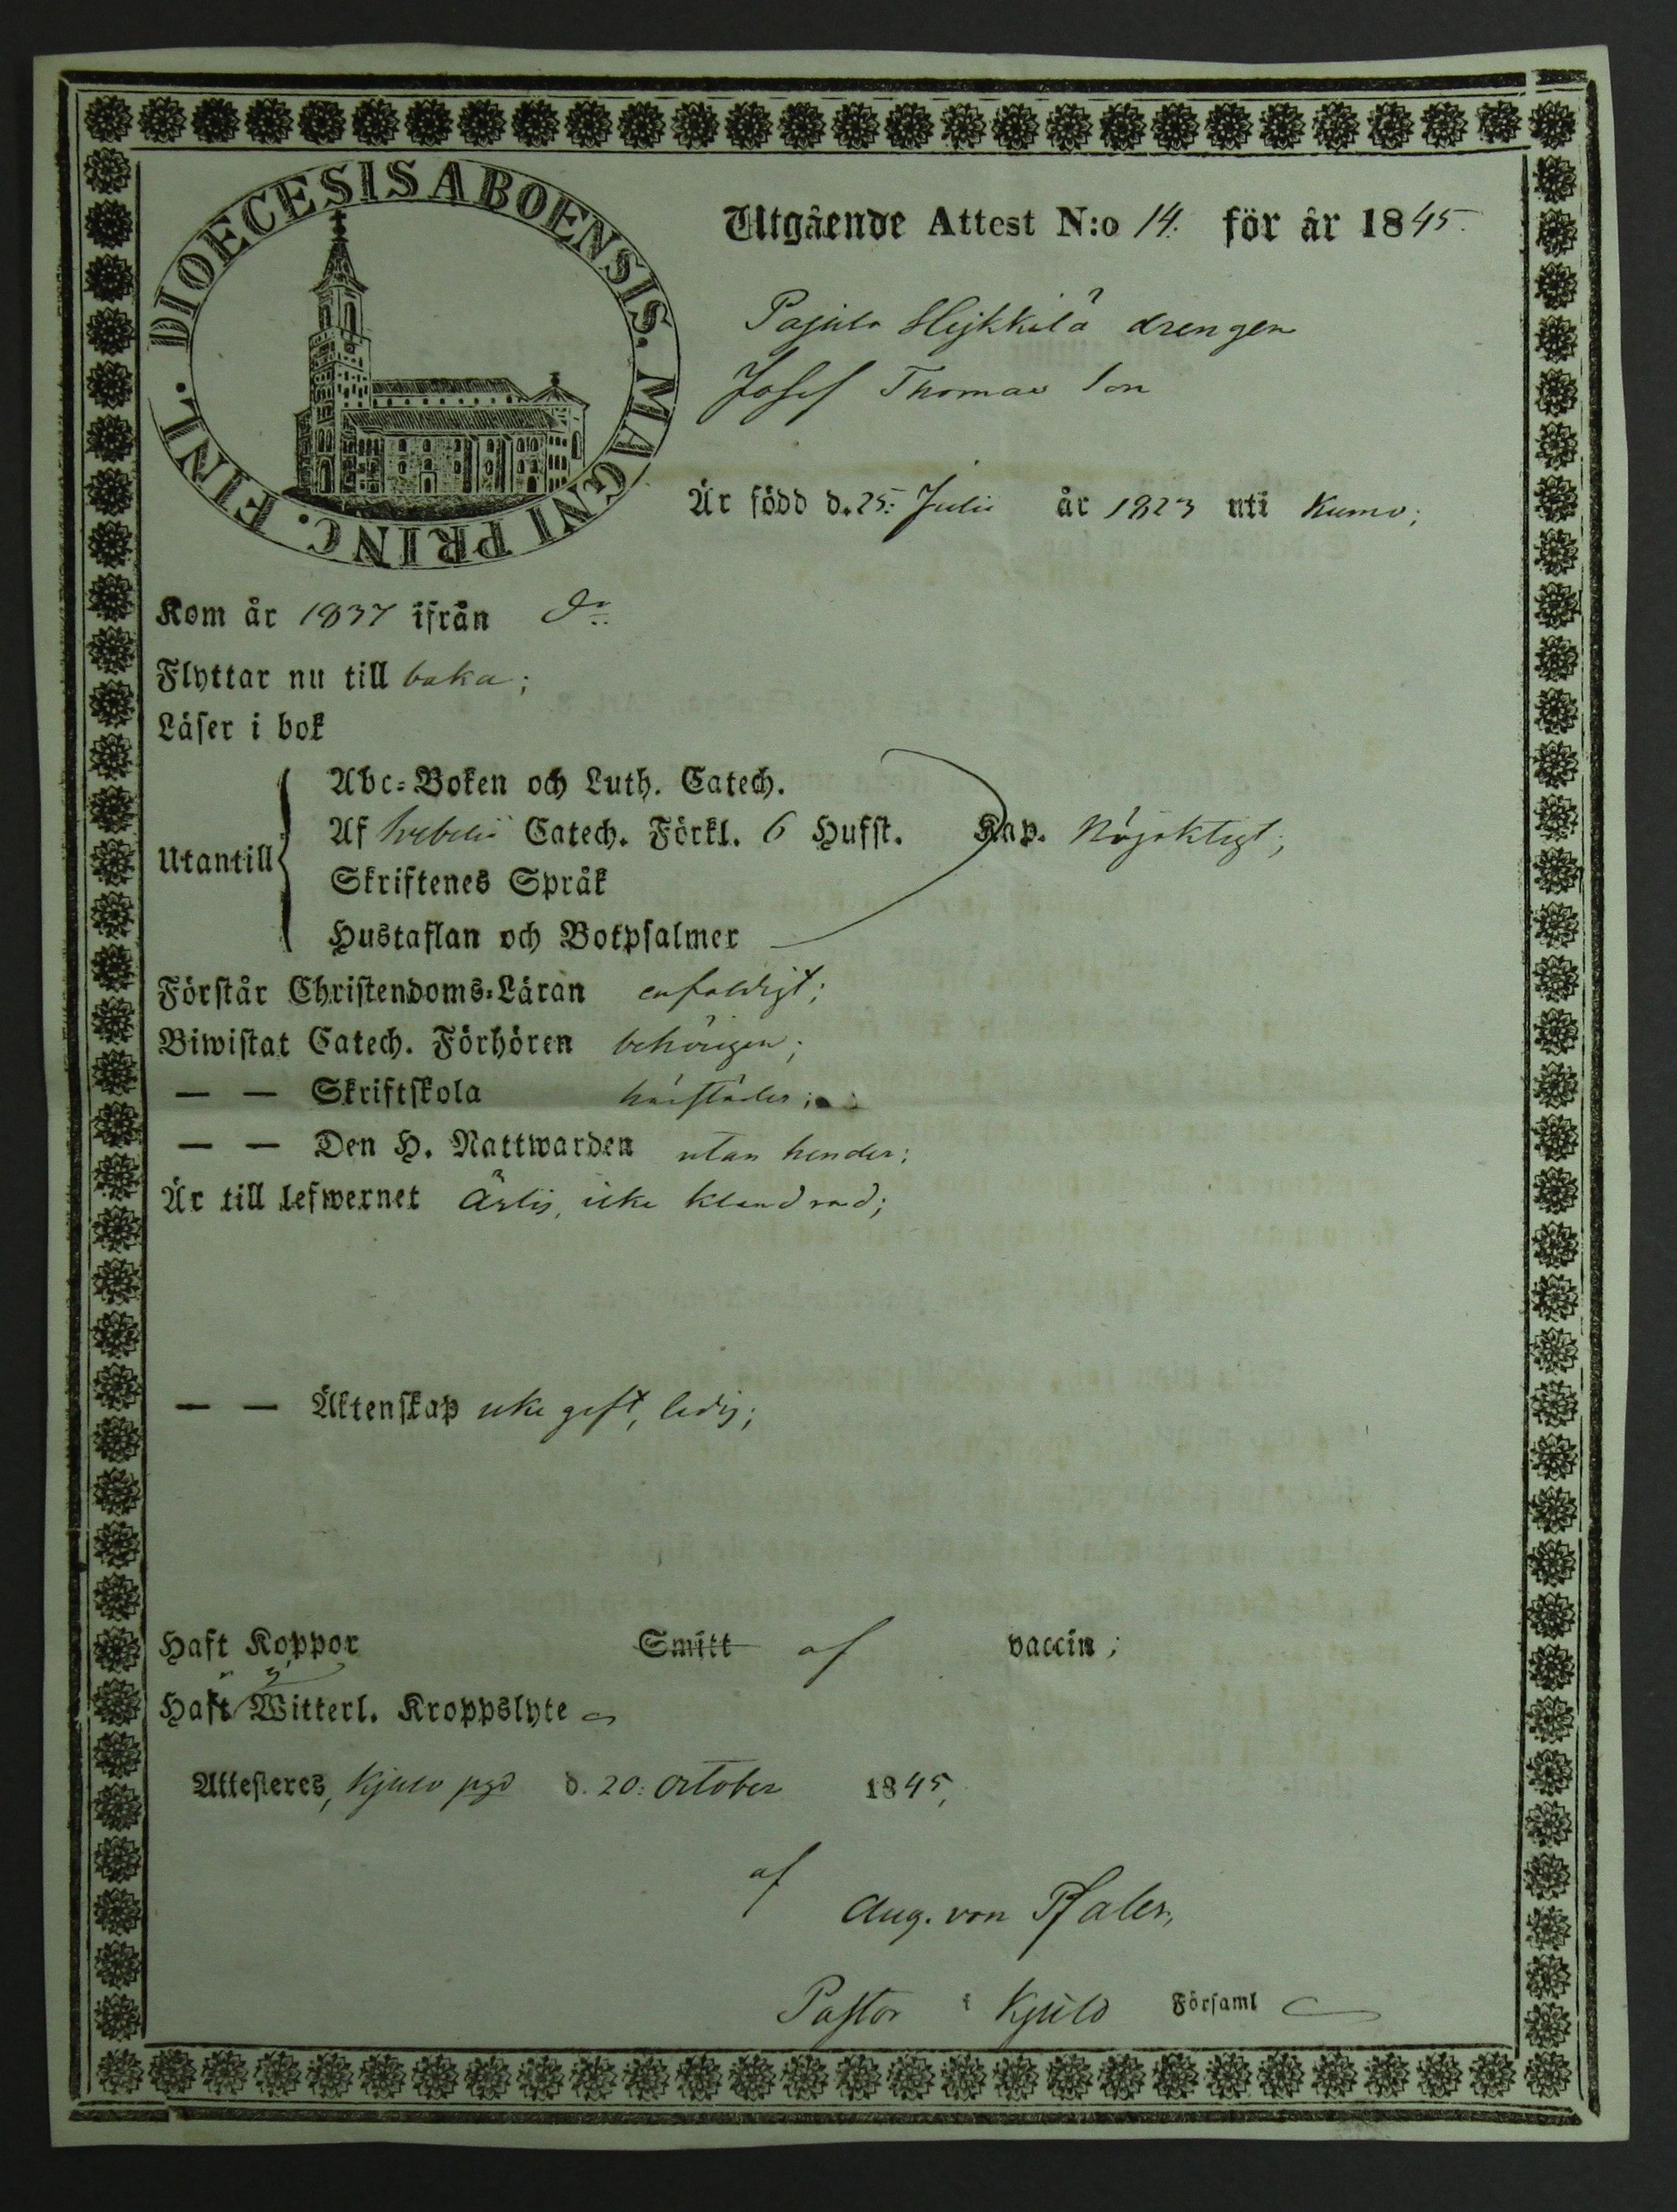 DIOECESIS ABOENSIS. MAGNI PRINC. FINL.
Utgående Attest N:o 14. för år 1845.
Pajula Heikkilä drengen
Josef Thomas Son
Är född d. 25: Julii år 1823 uti Kumo;
Kom år 1837 ifrån Do
Flyttar nu till baka;
Läser i bok
Utantill
Abc-Boken och Luth. Catech.
Af Svebelii Catech. Förkl. 6 Hufst. Kap. Nöjaktigt;
Skriftenes Språk
Hustaflan och Botpsalmer
Förstår Christendoms-Läran enfaldigt;
Biwistat Catech. Förhören behörigen;
— — Skriftskola härstädes;
— — Den H. Nattwarden utan hinder;
Är till lefwernet Ärlig, icke klandrad;
— — Äktenskap icke gift, ledig;
Haft Koppor Smitt af vaccin;
Haft ej Witterl. Kroppslyte
Attesteres, Kjulo pgd d. 20: October 1845,
af
Aug. von Pfaler,
Pastor i Kjulo Församl